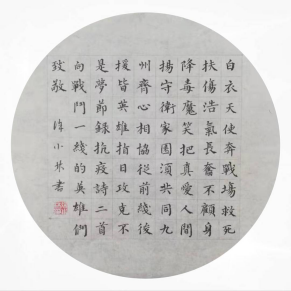 白衣天使奔戰場救死
扶傷浩氣長奮不顧身
降毒魔笑把真愛人間
揚守衛家園須共同九
州齊心相協從前綫後
援皆英雄指日攻克不
是夢節錄抗疫詩二首
向戰鬥一綫的英雄們
致敬
小林書